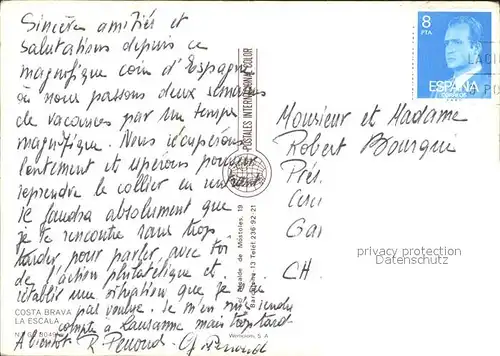 Sincères amitiés et
salutations depuis ce
magnifique coin d'Espagne
où nous passons deux semaines
de vacances par un temps
magnifique. Nous récupérons
lentement et espérons pouvoir
reprendre le collier en rentrant
Il faudra absolument que
je te rencontre sans trop
tarder pour parler avec toi
de l'action philatélique et
rétablir une situation que je
pas voulue. Je m'en suis rendu
compte à Lausanne mais trop tard
A bientôt R. Penoud - 
COSTA BRAVA
LA ESCALA
POSTALES INTERNATIONAL COLOR
Alcalde de Móstoles, 19
Barcelona-13 Teléf. 236-92-21
8
PTA
ESPAÑA
CORREOS
Monsieur et Madame
Robert Bourqui
Prés.
Gar
CH
privacy protection
watermark